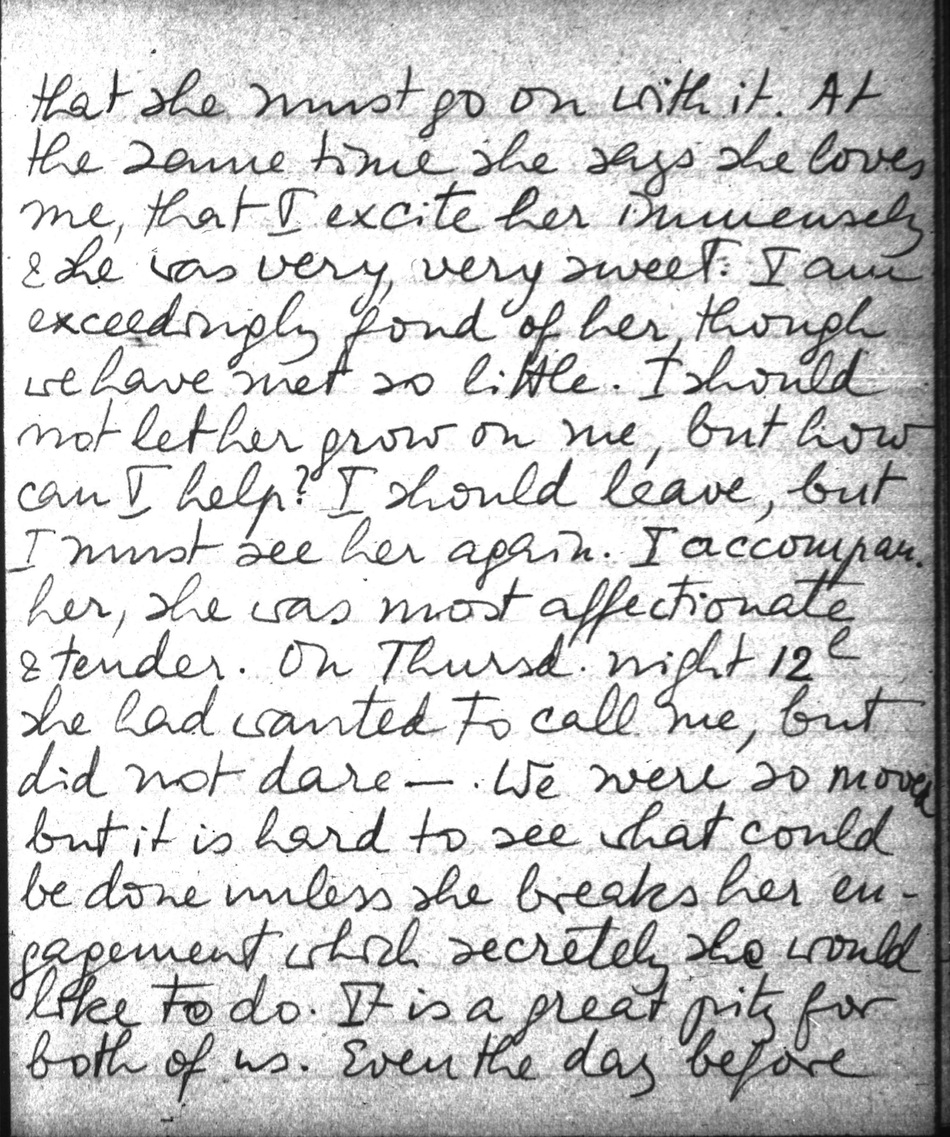 that she must go on with it. At
the same time she says she loves
me, that I excite her immensely
& she was very, very sweet. I am
exceedingly fond of her, though
we have met so little. I should
not let her grow on me, but how
can I help? I should leave, but
I must see her again. I accompan.
her, she was most affectionate
& tender. On Thursd. night 12
she had wanted to call me, but
did not dare —. We were so moved
but it is hard to see what could
be done unless she breaks her en-
gagement which secretely she would
like to do. It is a great pity for
both of us. Even the day before